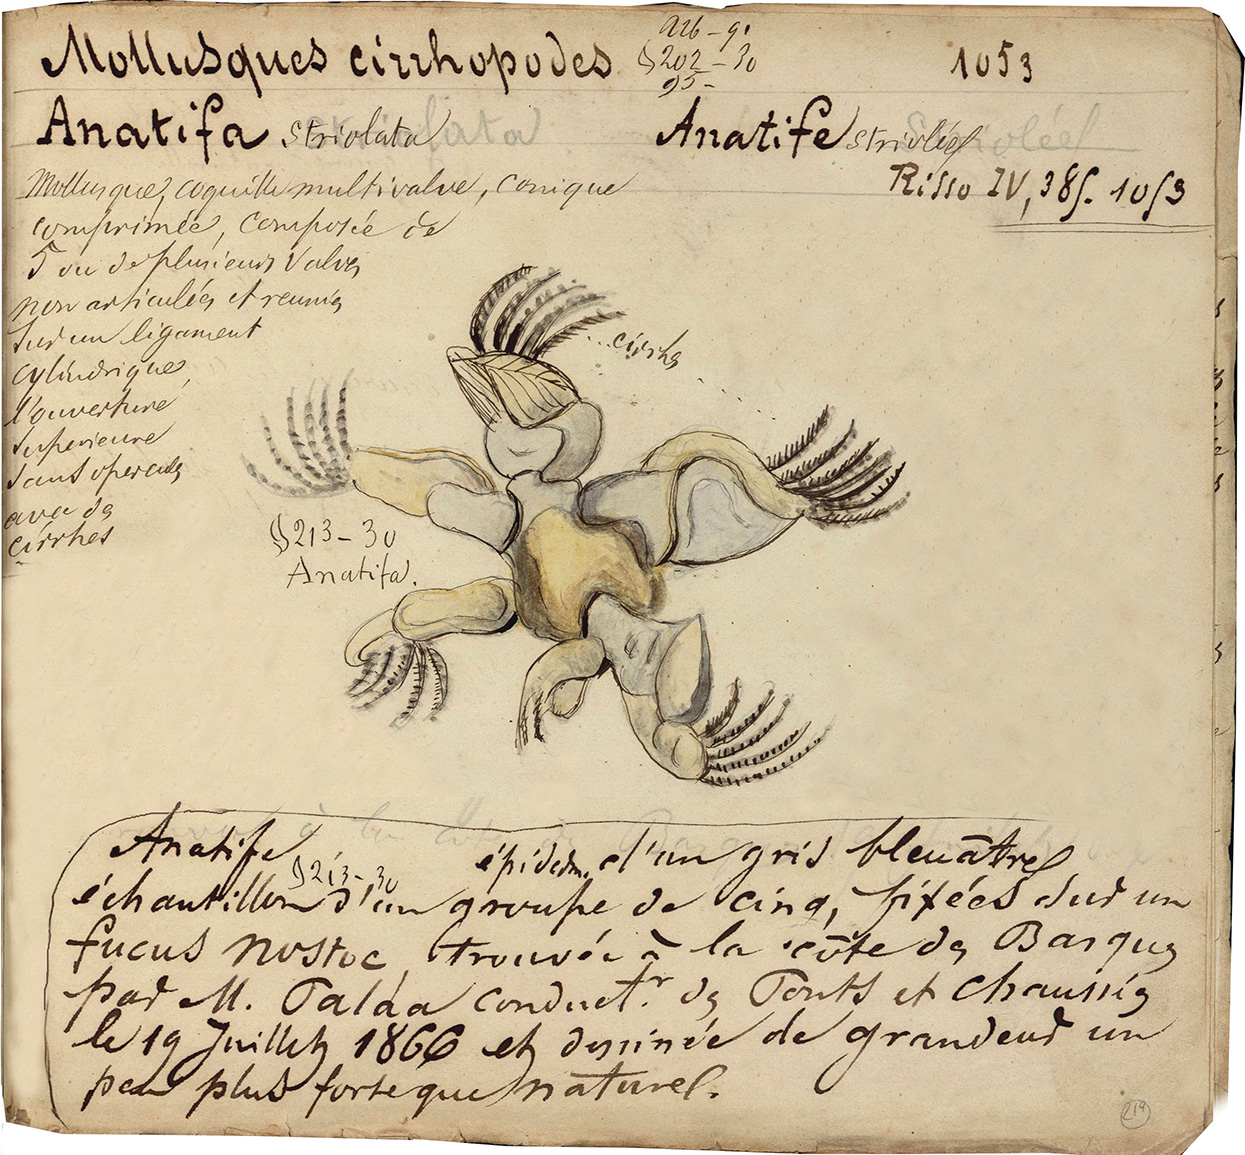 Mollusques cirrhopodes
926 - 91
§ 202 - 30
95 -
1053
Anatifa striolata
Anatife striolée
Risso IV, 385. 1053
Mollusque, coquille multivalve, conique
comprimée, composée de
5 ou de plusieurs valves
non articulées et reunies
sur un ligament
cylindrique,
l'ouverture
superieure
sans opercules
avec des
cirrhes
... cirrhes
§ 213 - 30
Anatifa.
Anatife épiderm. d'un gris bleuâtre
§ 213 - 30
échantillon d'un groupe de cinq, fixées sur un
fucus nostoc, trouvée à la côte des Basques
par M. Palaa conduct.r des Ponts et chaussées
le 19 Juillet 1866 et dessinée de grandeur un
peu plus forte que naturel.
219